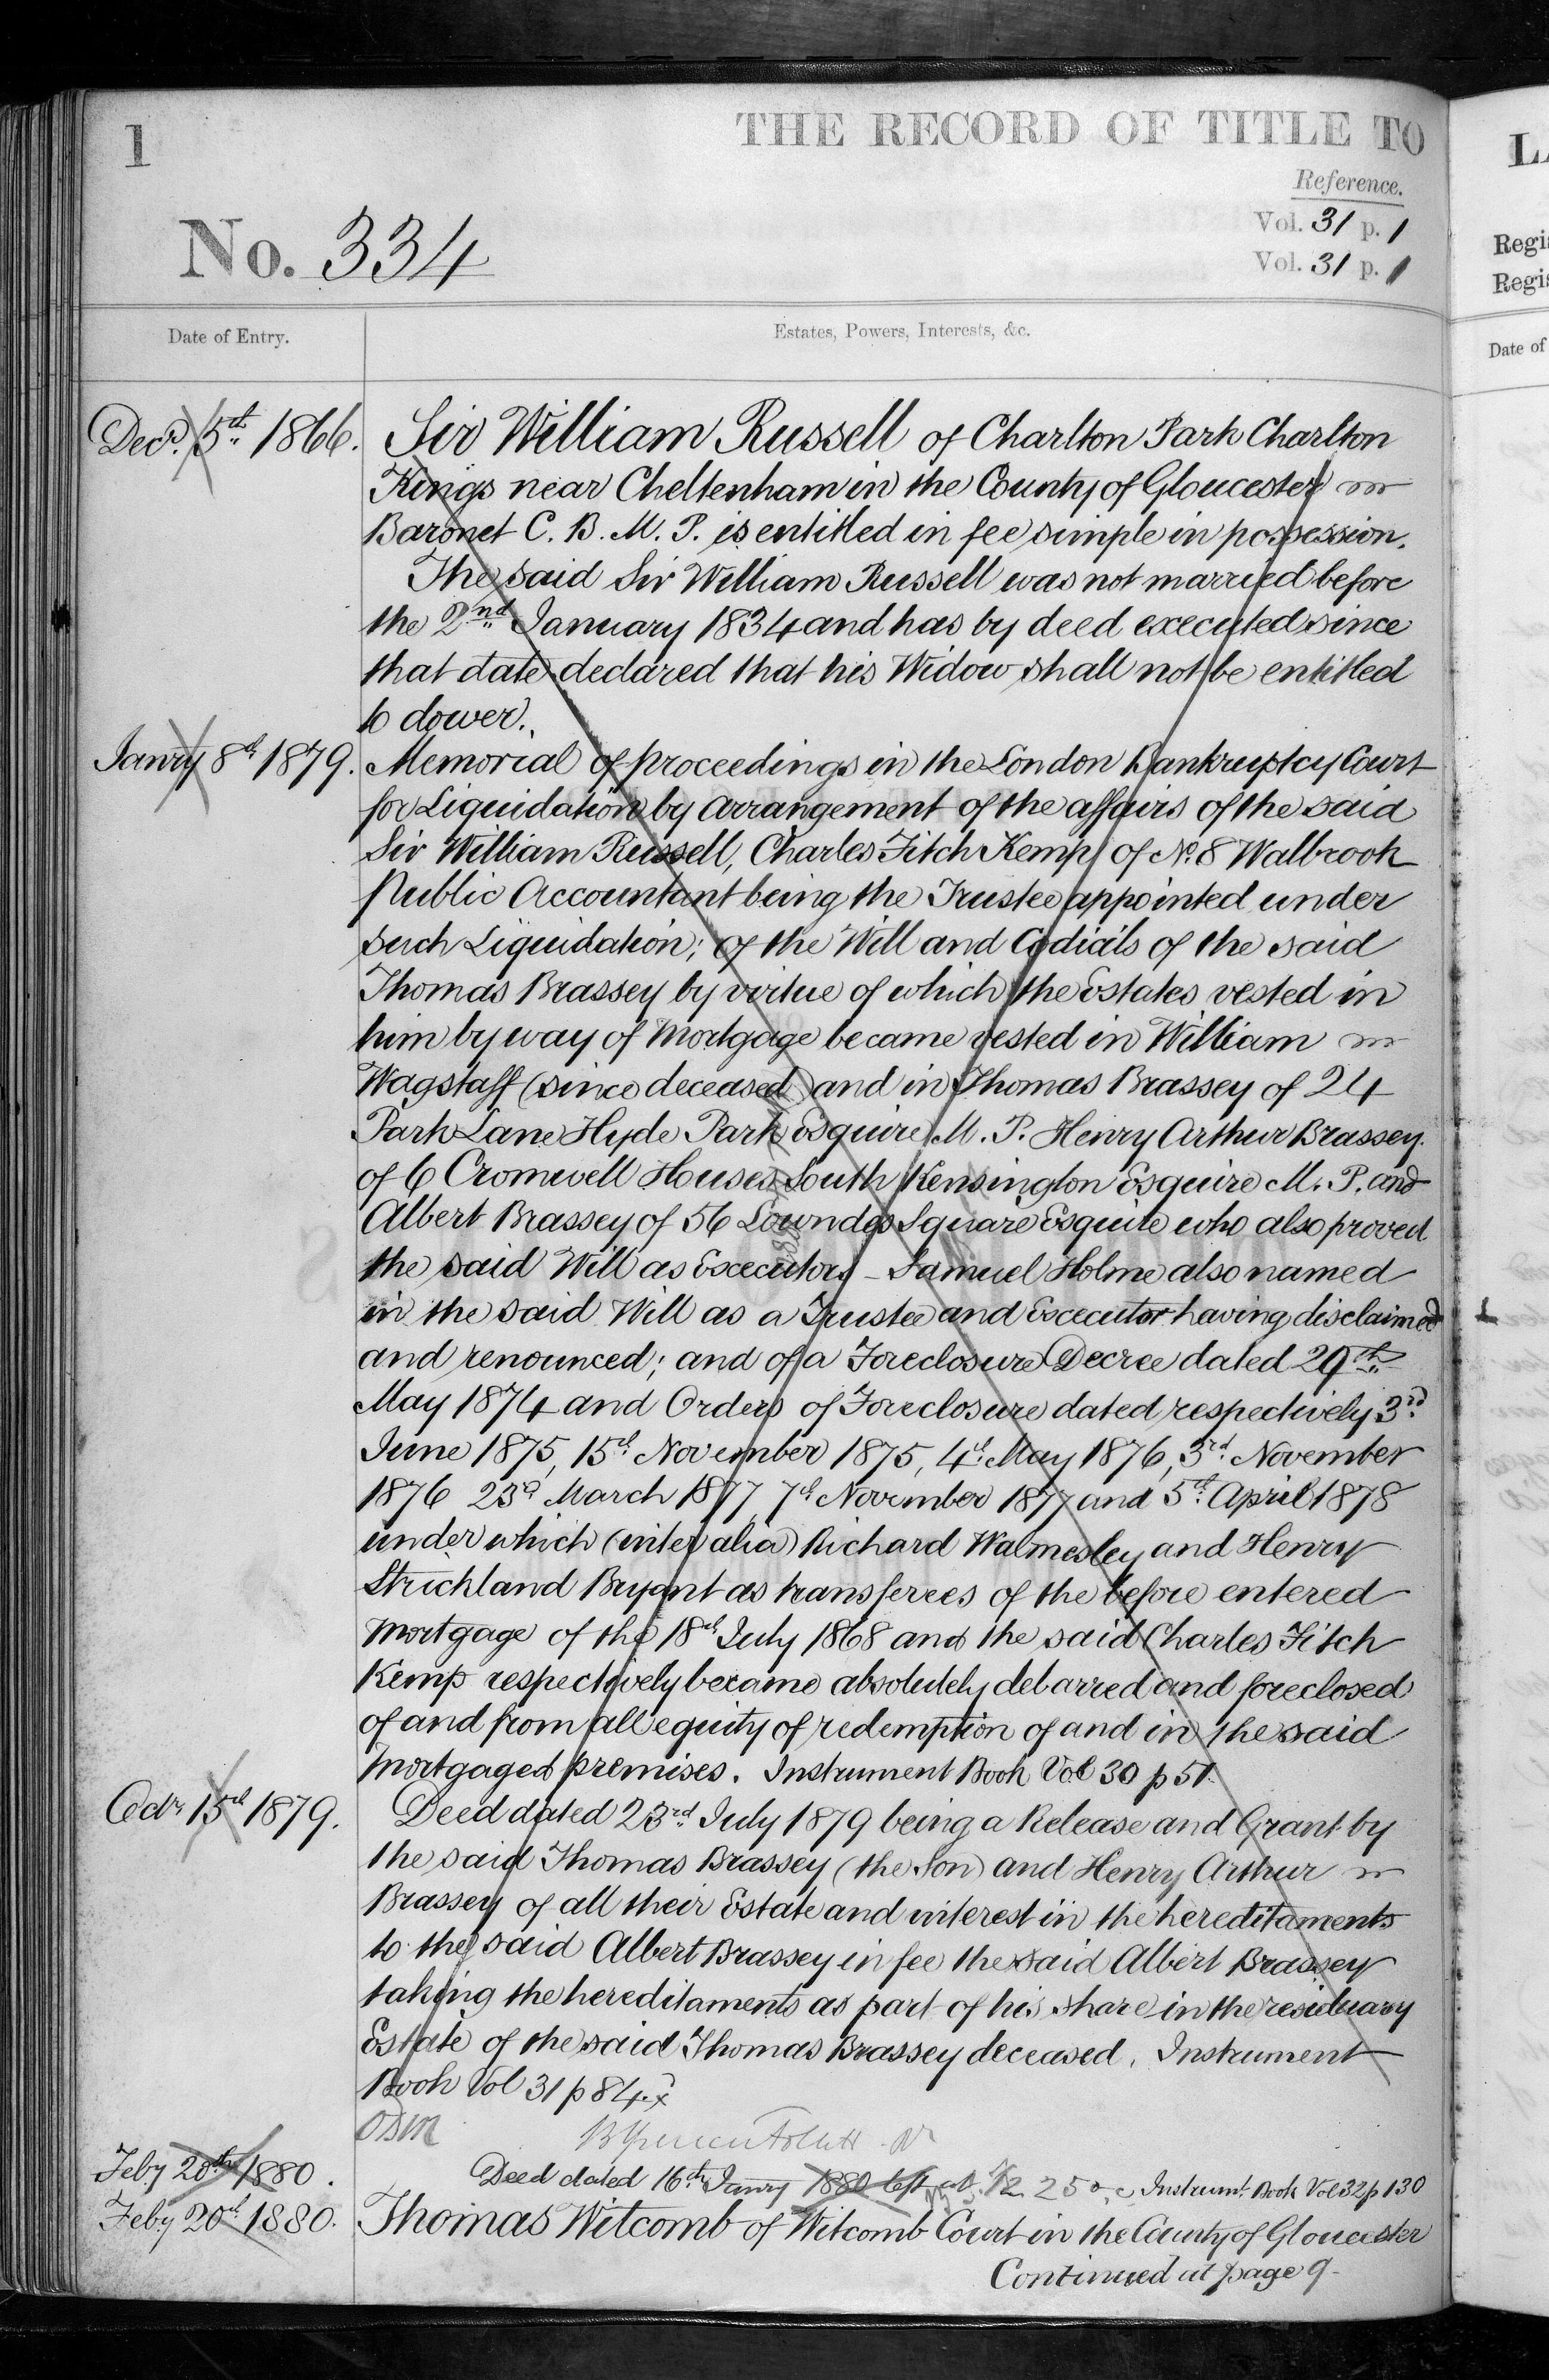 1
THE RECORD OF TITLE TO
Reference.
Vol. 31 p. 1
Vol. 31 p. 1
No. 334
Date of Entry.
Estates, Powers, Interests, &c.
Decr. 5th 1866.
Sir William Russell of Charlton Park Charlton
Kings near Cheltenham in the County of Gloucester
Baronet C. B. M. P. is entitled in fee simple in possession.
The said Sir William Russell was not married before
the 2nd January 1834 and has by deed executed since
that date declared that his Widow shall not be entitled
to dower.
Janry 8th 1879.
Memorial of proceedings in the London Bankruptcy Court
for Liquidation by Arrangement of the affairs of the said
Sir William Russell, Charles Fitch Kemp of No. 8 Walbrook
Public Accountant being the Trustee appointed under
such Liquidation; of the Will and Codicils of the said
Thomas Brassey by virtue of which the Estates vested in
him by way of Mortgage became vested in William
Wagstaff (since deceased) and in Thomas Brassey of 24
Park Lane Hyde Park Esquire M. P. Henry Arthur Brassey
of 6 Cromwell Houses South Kensington Esquire M. P. and
Albert Brassey of 56 Lowndes Square Esquire who also proved
the said Will as Executors - Samuel Holme also named
in the said Will as a Trustee and Executor having disclaimed
and renounced; and of a Foreclosure Decree dated 29th
May 1874 and Orders of Foreclosure dated respectively 3rd
June 1875, 15th November 1875, 4th May 1876, 3rd November
1876 23rd March 1877, 7th November 1877 and 5th April 1878
under which (inter alia) Richard Walmesley and Henry
Strickland Bryant as transferees of the before entered
Mortgage of the 18th July 1868 and the said Charles Fitch
Kemp respectively became absolutely debarred and foreclosed
of and from all equity of redemption of and in the said
Mortgaged premises. Instrument Book Vol 30 p 51.
Octr 15th 1879.
Deed dated 23rd July 1879 being a Release and Grant by
the said Thomas Brassey (the Son) and Henry Arthur
Brassey of all their Estate and interest in the hereditaments
to the said Albert Brassey in fee the said Albert Brassey
taking the hereditaments as part of his share in the residuary
Estate of the said Thomas Brassey deceased. Instrument
Book Vol 31 p 84
Feby 20th 1880.
Deed dated 16th Janry 1880 Instrumt. Book Vol 32 p 130
Feby 20th 1880.
Thomas Witcomb of Witcomb Court in the County of Gloucester
Continued at page 9